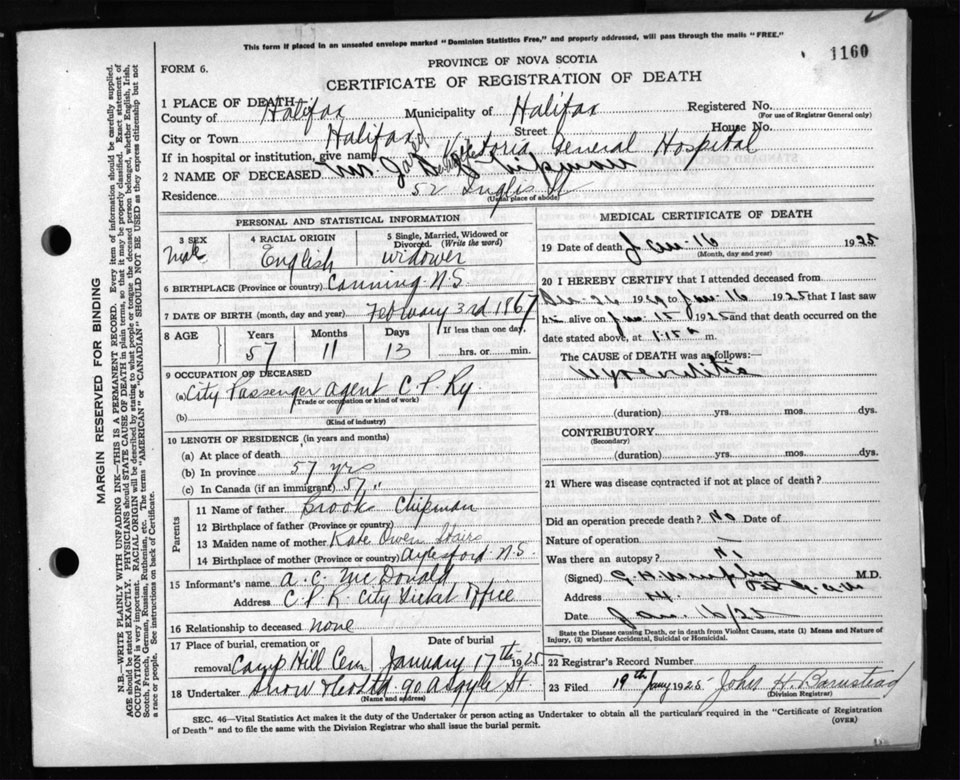 This form if placed in an unsealed envelope marked "Dominion Statistics Free," and properly addressed, will pass through the mails "FREE."
1160
FORM 6.
PROVINCE OF NOVA SCOTIA
CERTIFICATE OF REGISTRATION OF DEATH
1 PLACE OF DEATH
County of Halifax Municipality of Halifax Registered No.
(For use of Registrar General only)
City or Town Halifax Street House No.
If in hospital or institution, give name Victoria General Hospital
2 NAME OF DECEASED Chipman
Residence 52 Inglis St
(Usual place of abode)
PERSONAL AND STATISTICAL INFORMATION
3 SEX Male
4 RACIAL ORIGIN English
5 Single, Married, Widowed or Divorced. (Write the word) widower
6 BIRTHPLACE (Province or country) Canning N.S.
7 DATE OF BIRTH (month, day and year) February 3rd 1867
8 AGE Years Months Days If less than one day,
57 11 13 hrs. or min.
9 OCCUPATION OF DECEASED
(a) City Passenger agent C.P. Ry.
(Trade or occupation or kind of work)
(b)
(Kind of industry)
10 LENGTH OF RESIDENCE (in years and months)
(a) At place of death
(b) In province 57 yrs
(c) In Canada (if an immigrant) 57 "
Parents
11 Name of father Brook Chipman
12 Birthplace of father (Province or country)
13 Maiden name of mother Kate Owen Stairs
14 Birthplace of mother (Province or country) Aylesford N.S.
15 Informant's name A. C. McDonald
Address C.P.R. City Ticket Office
16 Relationship to deceased none
17 Place of burial, cremation or removal Camp Hill Cem Date of burial January 17th 1925
18 Undertaker Snow & Co Ltd. 90 Argyle St.
(Name and address)
MEDICAL CERTIFICATE OF DEATH
19 Date of death Jan 16 1925
(Month, day and year)
20 I HEREBY CERTIFY that I attended deceased from
Dec 24 19 to Jan 16 1925 that I last saw
him alive on Jan 15 1925 and that death occurred on
date stated above, at 1.15 a m.
The CAUSE of DEATH was as follows:—
(duration) yrs. mos. dys.
CONTRIBUTORY
(Secondary)
(duration) yrs. mos. dys.
21 Where was disease contracted if not at place of death?
Did an operation precede death? No Date of
Nature of operation
Was there an autopsy? No
(Signed) M.D.
Address
Date Jan. 16/25
State the Disease causing Death, or in death from Violent Causes, state (1) Means and Nature of Injury, (2) whether Accidental, Suicidal or Homicidal.
22 Registrar's Record Number
23 Filed 19th Jany 1925 John H. Barnstead
(Division Registrar)
SEC. 46—Vital Statistics Act makes it the duty of the Undertaker or person acting as Undertaker to obtain all the particulars required in the "Certificate of Registration
of Death" and to file the same with the Division Registrar who shall issue the burial permit.
(OVER)
MARGIN RESERVED FOR BINDING
N.B.—WRITE PLAINLY WITH UNFADING INK—THIS IS A PERMANENT RECORD. Every item of information should be carefully supplied.
AGE should be stated EXACTLY. PHYSICIANS should STATE CAUSE OF DEATH in plain terms, so that it may be properly classified. Exact statement of
OCCUPATION is very important. RACIAL ORIGIN will be described by stating to what people or tongue the deceased person belonged, whether English, Irish,
Scotch, French, German, Russian, Ruthenian, etc. The terms "AMERICAN" or "CANADIAN" SHOULD NOT BE USED as they express citizenship but not
a race or people. See instructions on back of Certificate.